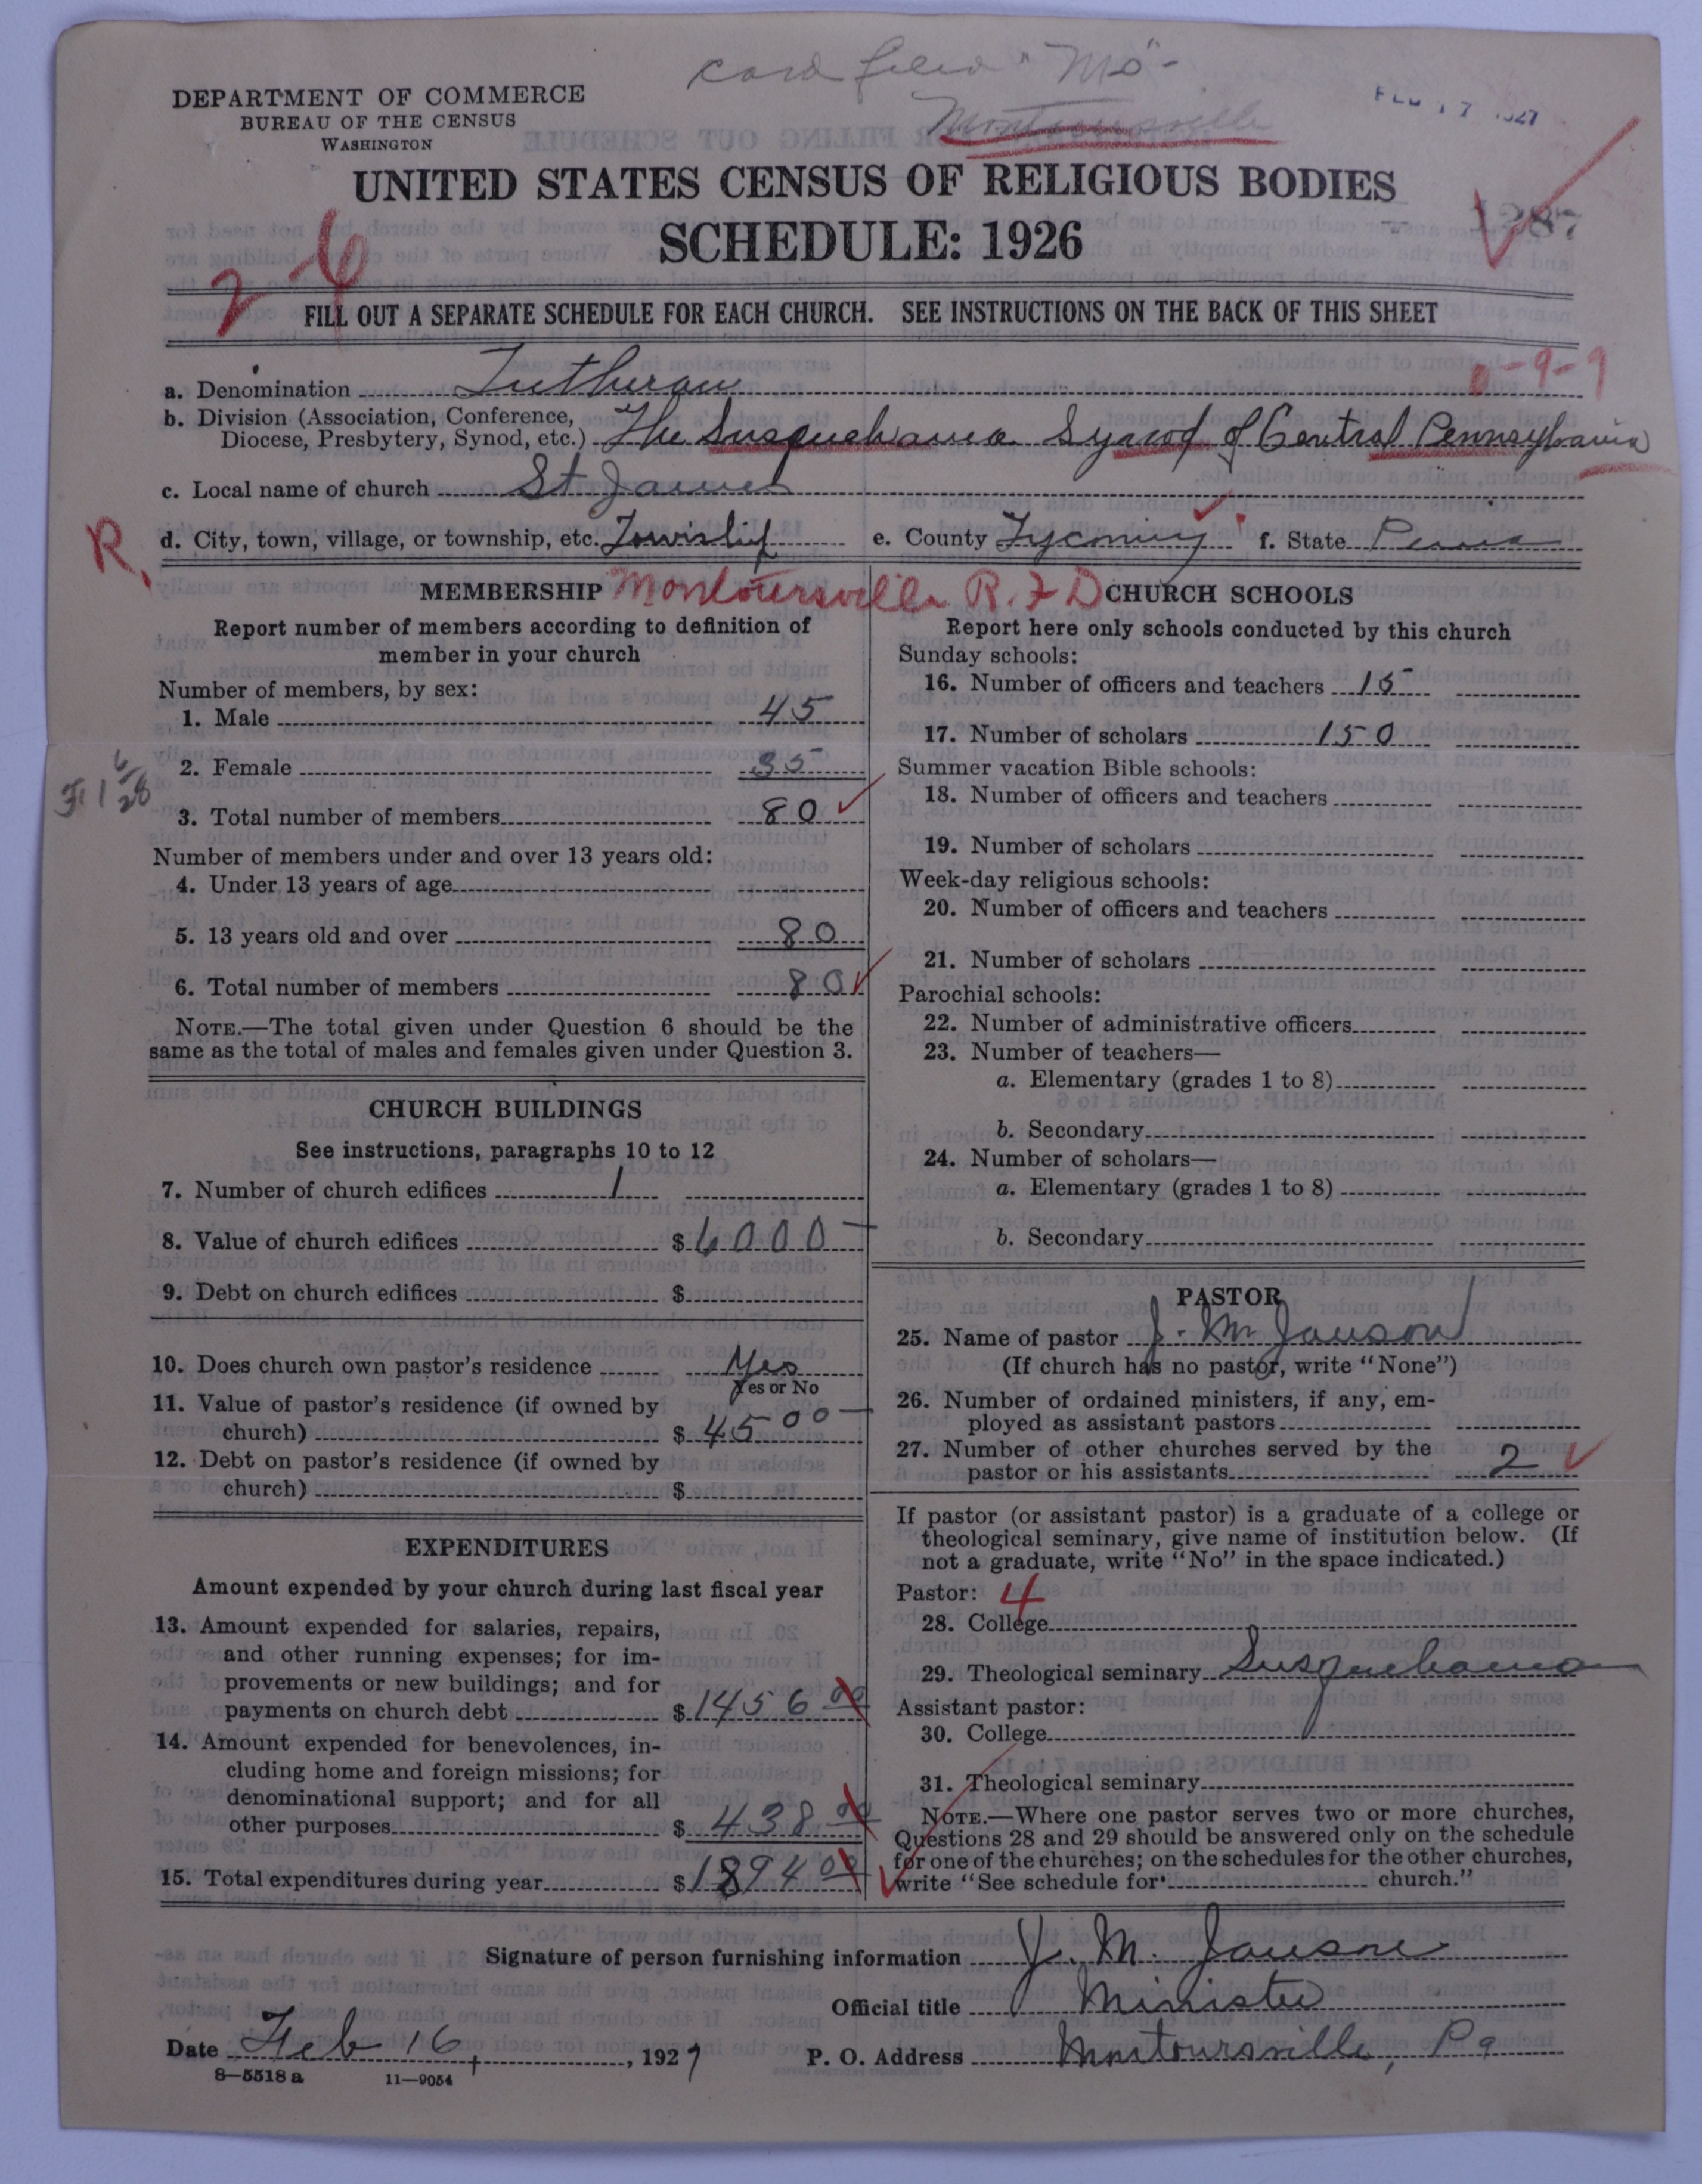 card filed "Mo"-
Montoursville
DEPARTMENT OF COMMERCE
BUREAU OF THE CENSUS
WASHINGTON
FEB 17 1927
UNITED STATES CENSUS OF RELIGIOUS BODIES
SCHEDULE: 1926
2-6
FILL OUT A SEPARATE SCHEDULE FOR EACH CHURCH. SEE INSTRUCTIONS ON THE BACK OF THIS SHEET
0-9-9
a. Denomination Lutheran
b. Division (Association, Conference,
Diocese, Presbytery, Synod, etc.) The Susquehanna Synod of Central Pennsylvania
c. Local name of church St James
R.
d. City, town, village, or township, etc. Township e. County Lycoming f. State Penna
Montoursville R.F.D
MEMBERSHIP
Report number of members according to definition of
member in your church
Number of members, by sex:
1. Male 45
2. Female 35
3. Total number of members 80
Number of members under and over 13 years old:
4. Under 13 years of age
5. 13 years old and over 80
6. Total number of members 80
NOTE.—The total given under Question 6 should be the
same as the total of males and females given under Question 3.
CHURCH BUILDINGS
See instructions, paragraphs 10 to 12
7. Number of church edifices 1
8. Value of church edifices $ 6000
9. Debt on church edifices $
10. Does church own pastor's residence Yes
Yes or No
11. Value of pastor's residence (if owned by
church) $ 4500
12. Debt on pastor's residence (if owned by
church) $
EXPENDITURES
Amount expended by your church during last fiscal year
13. Amount expended for salaries, repairs,
and other running expenses; for im-
provements or new buildings; and for
payments on church debt $ 1456 00
14. Amount expended for benevolences, in-
cluding home and foreign missions; for
denominational support; and for all
other purposes $ 438 00
15. Total expenditures during year $ 1894 00
CHURCH SCHOOLS
Report here only schools conducted by this church
Sunday schools:
16. Number of officers and teachers 15
17. Number of scholars 150
Summer vacation Bible schools:
18. Number of officers and teachers
19. Number of scholars
Week-day religious schools:
20. Number of officers and teachers
21. Number of scholars
Parochial schools:
22. Number of administrative officers
23. Number of teachers—
a. Elementary (grades 1 to 8)
b. Secondary
24. Number of scholars—
a. Elementary (grades 1 to 8)
b. Secondary
PASTOR
25. Name of pastor J. M Janson
(If church has no pastor, write "None")
26. Number of ordained ministers, if any, em-
ployed as assistant pastors
27. Number of other churches served by the
pastor or his assistants 2
If pastor (or assistant pastor) is a graduate of a college or
theological seminary, give name of institution below. (If
not a graduate, write "No" in the space indicated.)
Pastor: 4
28. College
29. Theological seminary Susquehanna
Assistant pastor:
30. College
31. Theological seminary
NOTE.—Where one pastor serves two or more churches,
Questions 28 and 29 should be answered only on the schedule
for one of the churches; on the schedules for the other churches,
write "See schedule for church."
Signature of person furnishing information J. M. Janson
Official title Minister
Date Feb 16, 1927 P. O. Address Montoursville, Pa
8—5518 a 11—9054